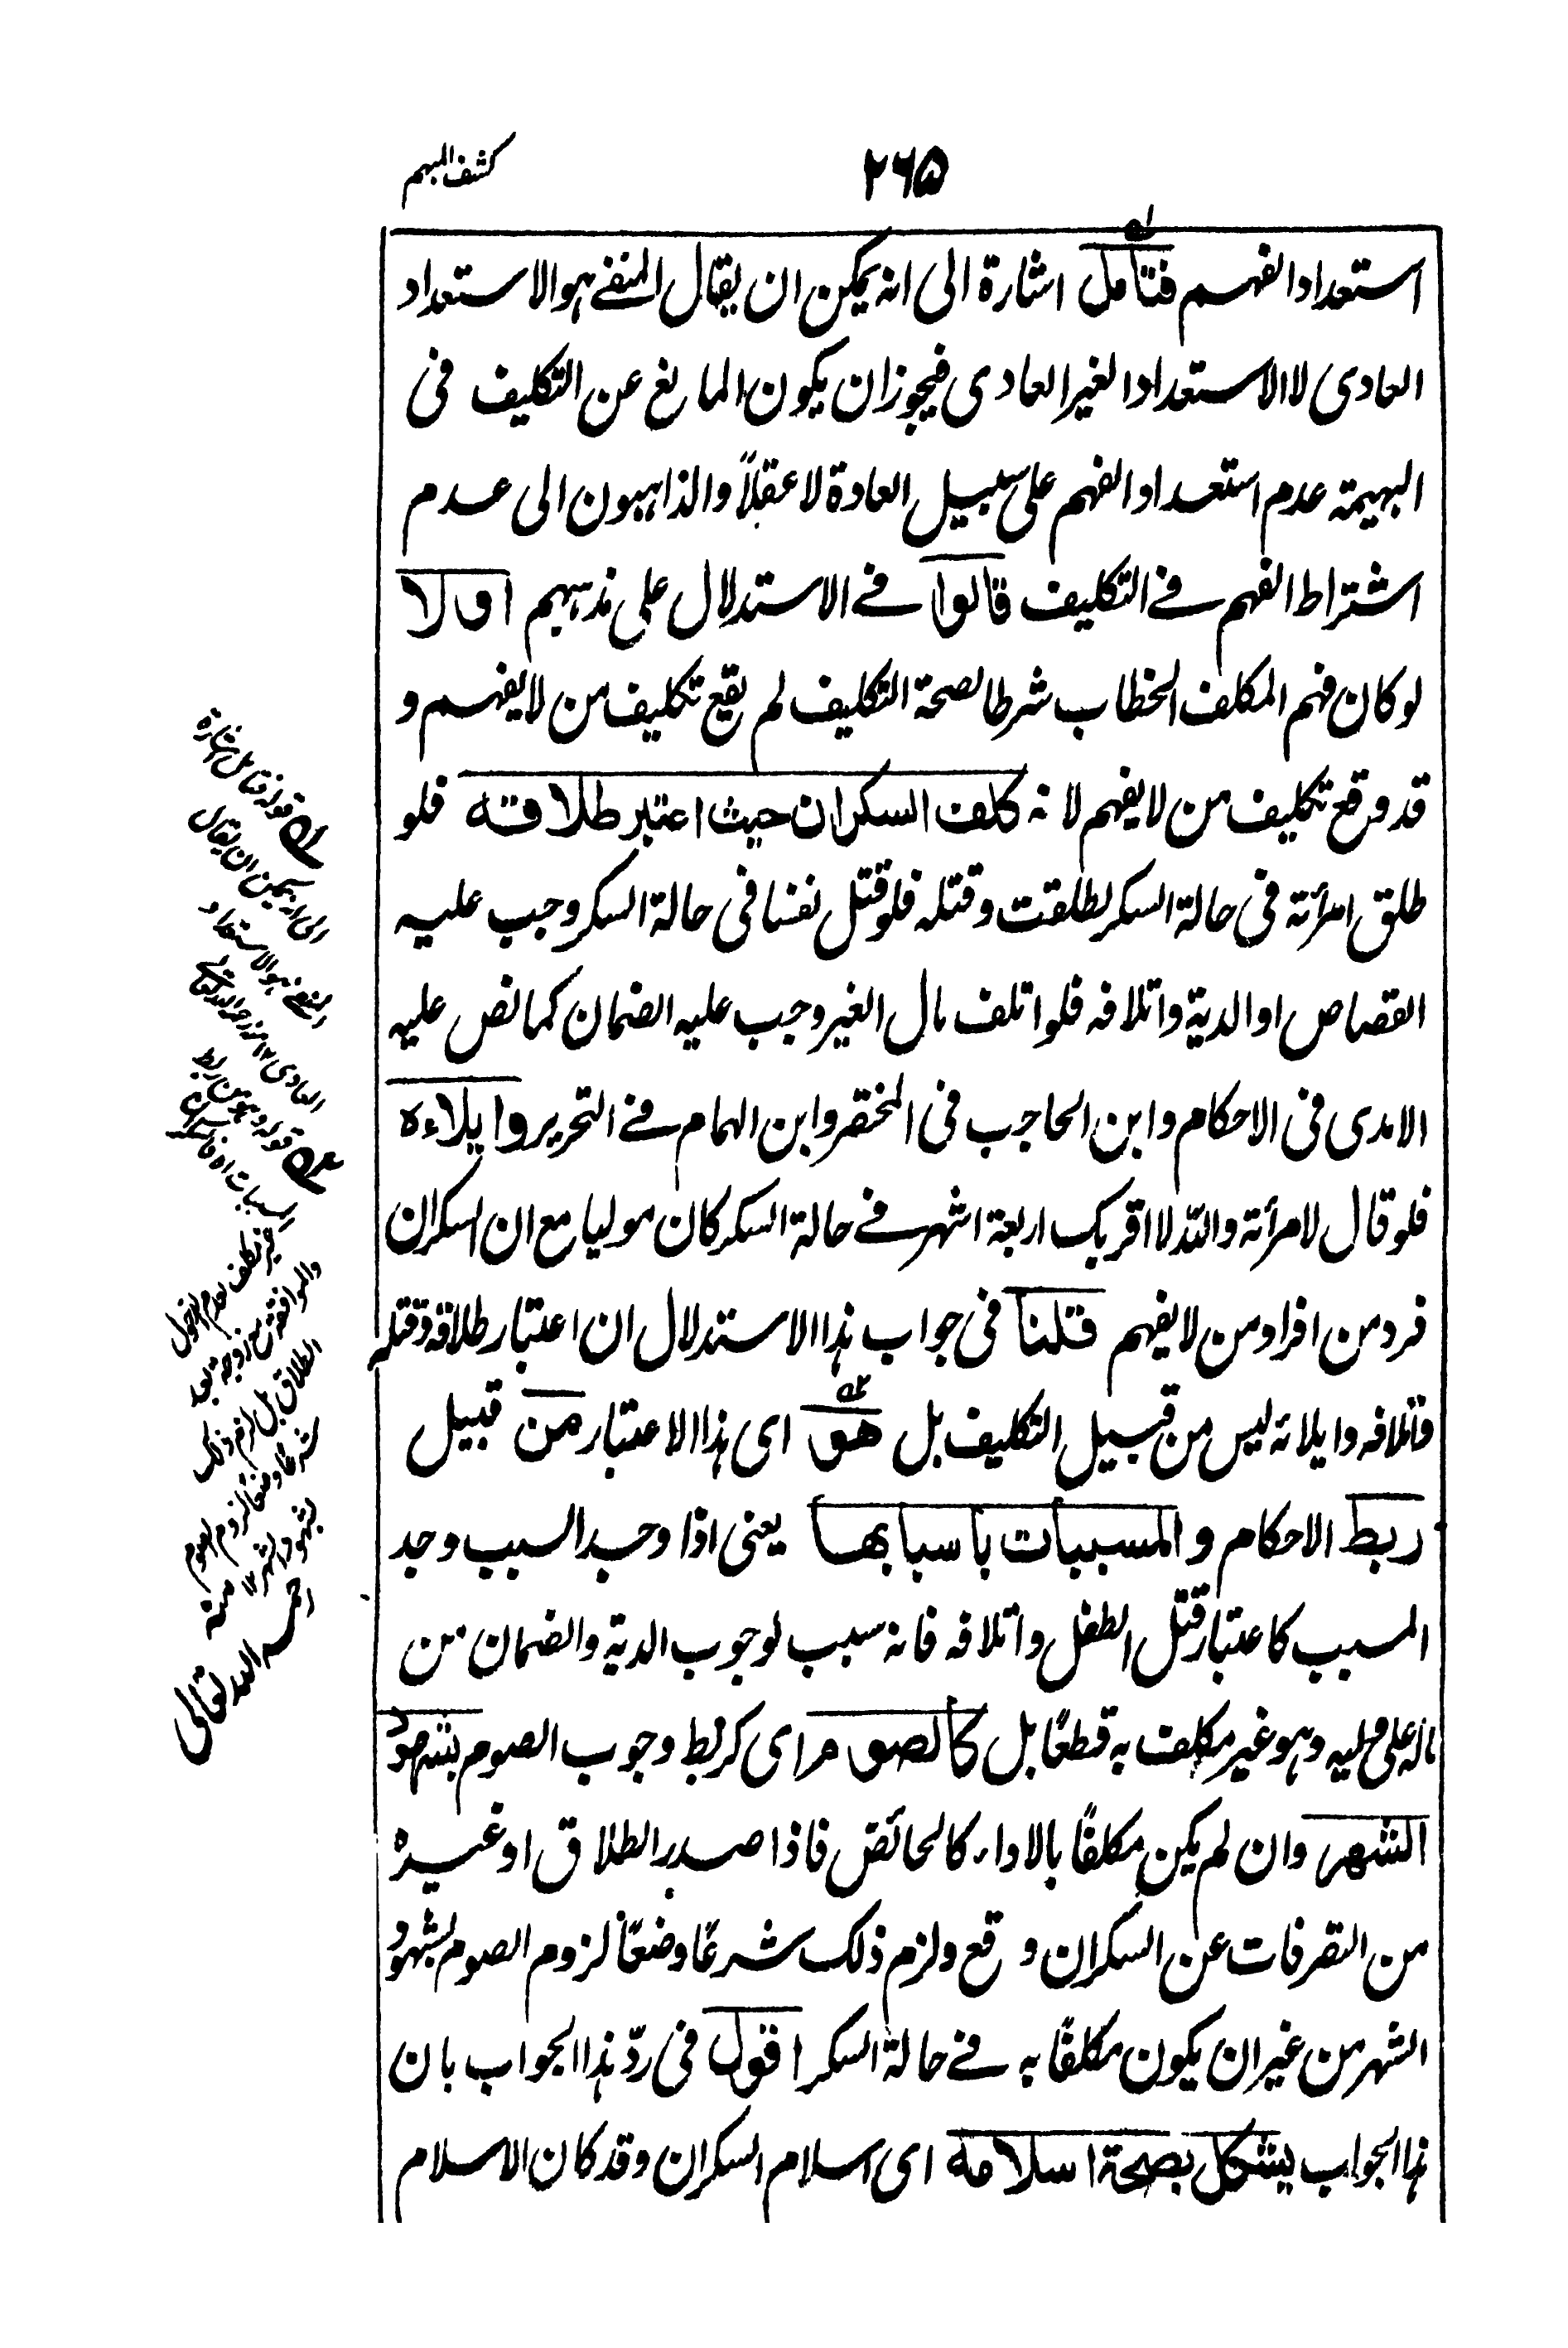 كشف المبهم
٢٦٥
استعداد الفهم فتأمل اشارة الى انه يمكن ان يقال المنفے هو الاستعداد
العادى لا الاستعداد الغير العادى فيجوز ان يكون المانع عن التكليف فى
البهيمة عدم استعداد الفهم على سبيل العادة لا عقلاً والذاهبون الى عدم
اشتراط الفهم فے التكليف قالوا فے الاستدلال على مذهبهم اولا
لو كان فهم المكلف الخطاب شرطا لصحة التكليف لم يقع تكليف من لا يفهم و
قد وقع تكليف من لا يفهم لانه كلف السكران حيث اعتبر طلاقه فلو
طلق امرأته فى حالة السكر لطلقت وقتله فلو قتل نفسا فى حالة السكر وجب عليه
القصاص او الدية واتلافه فلو اتلف مال الغير وجب عليه الضمان كما نص عليه
الامدى فى الاحكام وابن الحاجب فى المختصر وابن الهمام فے التحرير وايلاءه
فلو قال لامرأته والله لا اقربك اربعة اشهر فے حالة السكر كان موليا مع ان السكران
فرد من افراد من لا يفهم قلنا فى جواب هذا الاستدلال ان اعتبار طلاقه وقتله
واتلافه وايلائه ليس من قبيل التكليف بل هو اى هذا الاعتبار من قبيل
ربط الاحكام و المسببات باسبابها يعنى اذا وجد السبب وجد
المسبب كاعتبار قتل الطفل واتلافه فانه سبب لوجوب الدية والضمان من
ماله على وليه وهو غير مكلف به قطعًا بل كالصوم اى كربط وجوب الصوم بشهود
الشهر وان لم يكن مكلفًا بالاداء كالحائض فاذا صدر الطلاق او غيره
من التصرفات عن السكران وقع ولزم ذلك شرعًا وضعًا لزوم الصوم لشهود
الشهر من غير ان يكون مكلفًا به فے حالة السكر اقول فى ردّ هذا الجواب بان
هذا الجواب يشكل بصحة اسلامه اى اسلام السكران وقد كان الاسلام
له قوله فتامل اشارة
الى انه يمكن ان يقال
المنفے هو الاستعداد
العادى ١٢ منه رحمه الله تعالے
٢ه قوله وهو من ربط
المسببات اه فالسكران
غير مكلف بعدم الدخول
والموافقة من زوجه بعد
الطلاق بل لزم ذلك
شرعا وضعا لزوم الصوم
بشهود الشهر ١٢ منه
رحمه الله تعالى